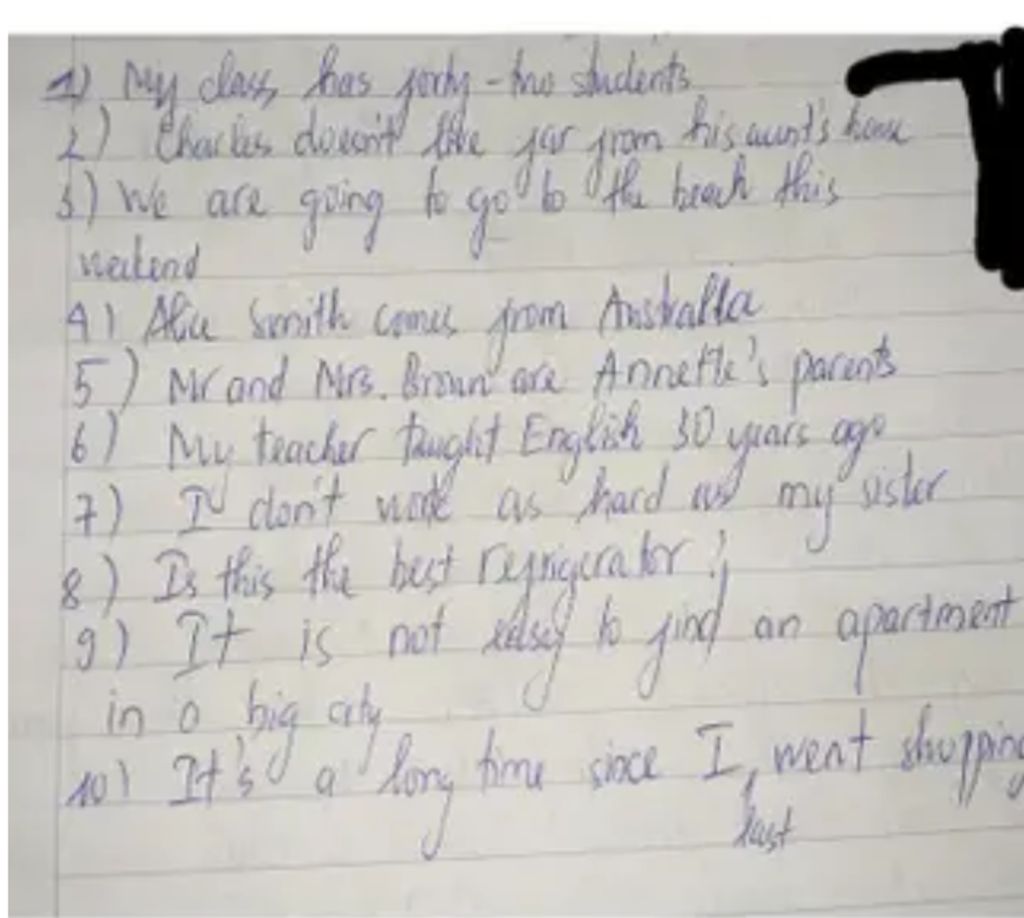 1) My class has forty-two students
2) Charles doesn't live far from his aunt's house
3) We are going to go to the beach this
weekend
4) Alice Smith comes from Australia
5) Mr and Mrs. Brown are Annette's parents
6) My teacher taught English 30 years ago
7) I don't work as hard as my sister
8) Is this the best refrigerator?
9) It is not easy to find an apartment
in a big city
10) It's a long time since I, went shopping
last